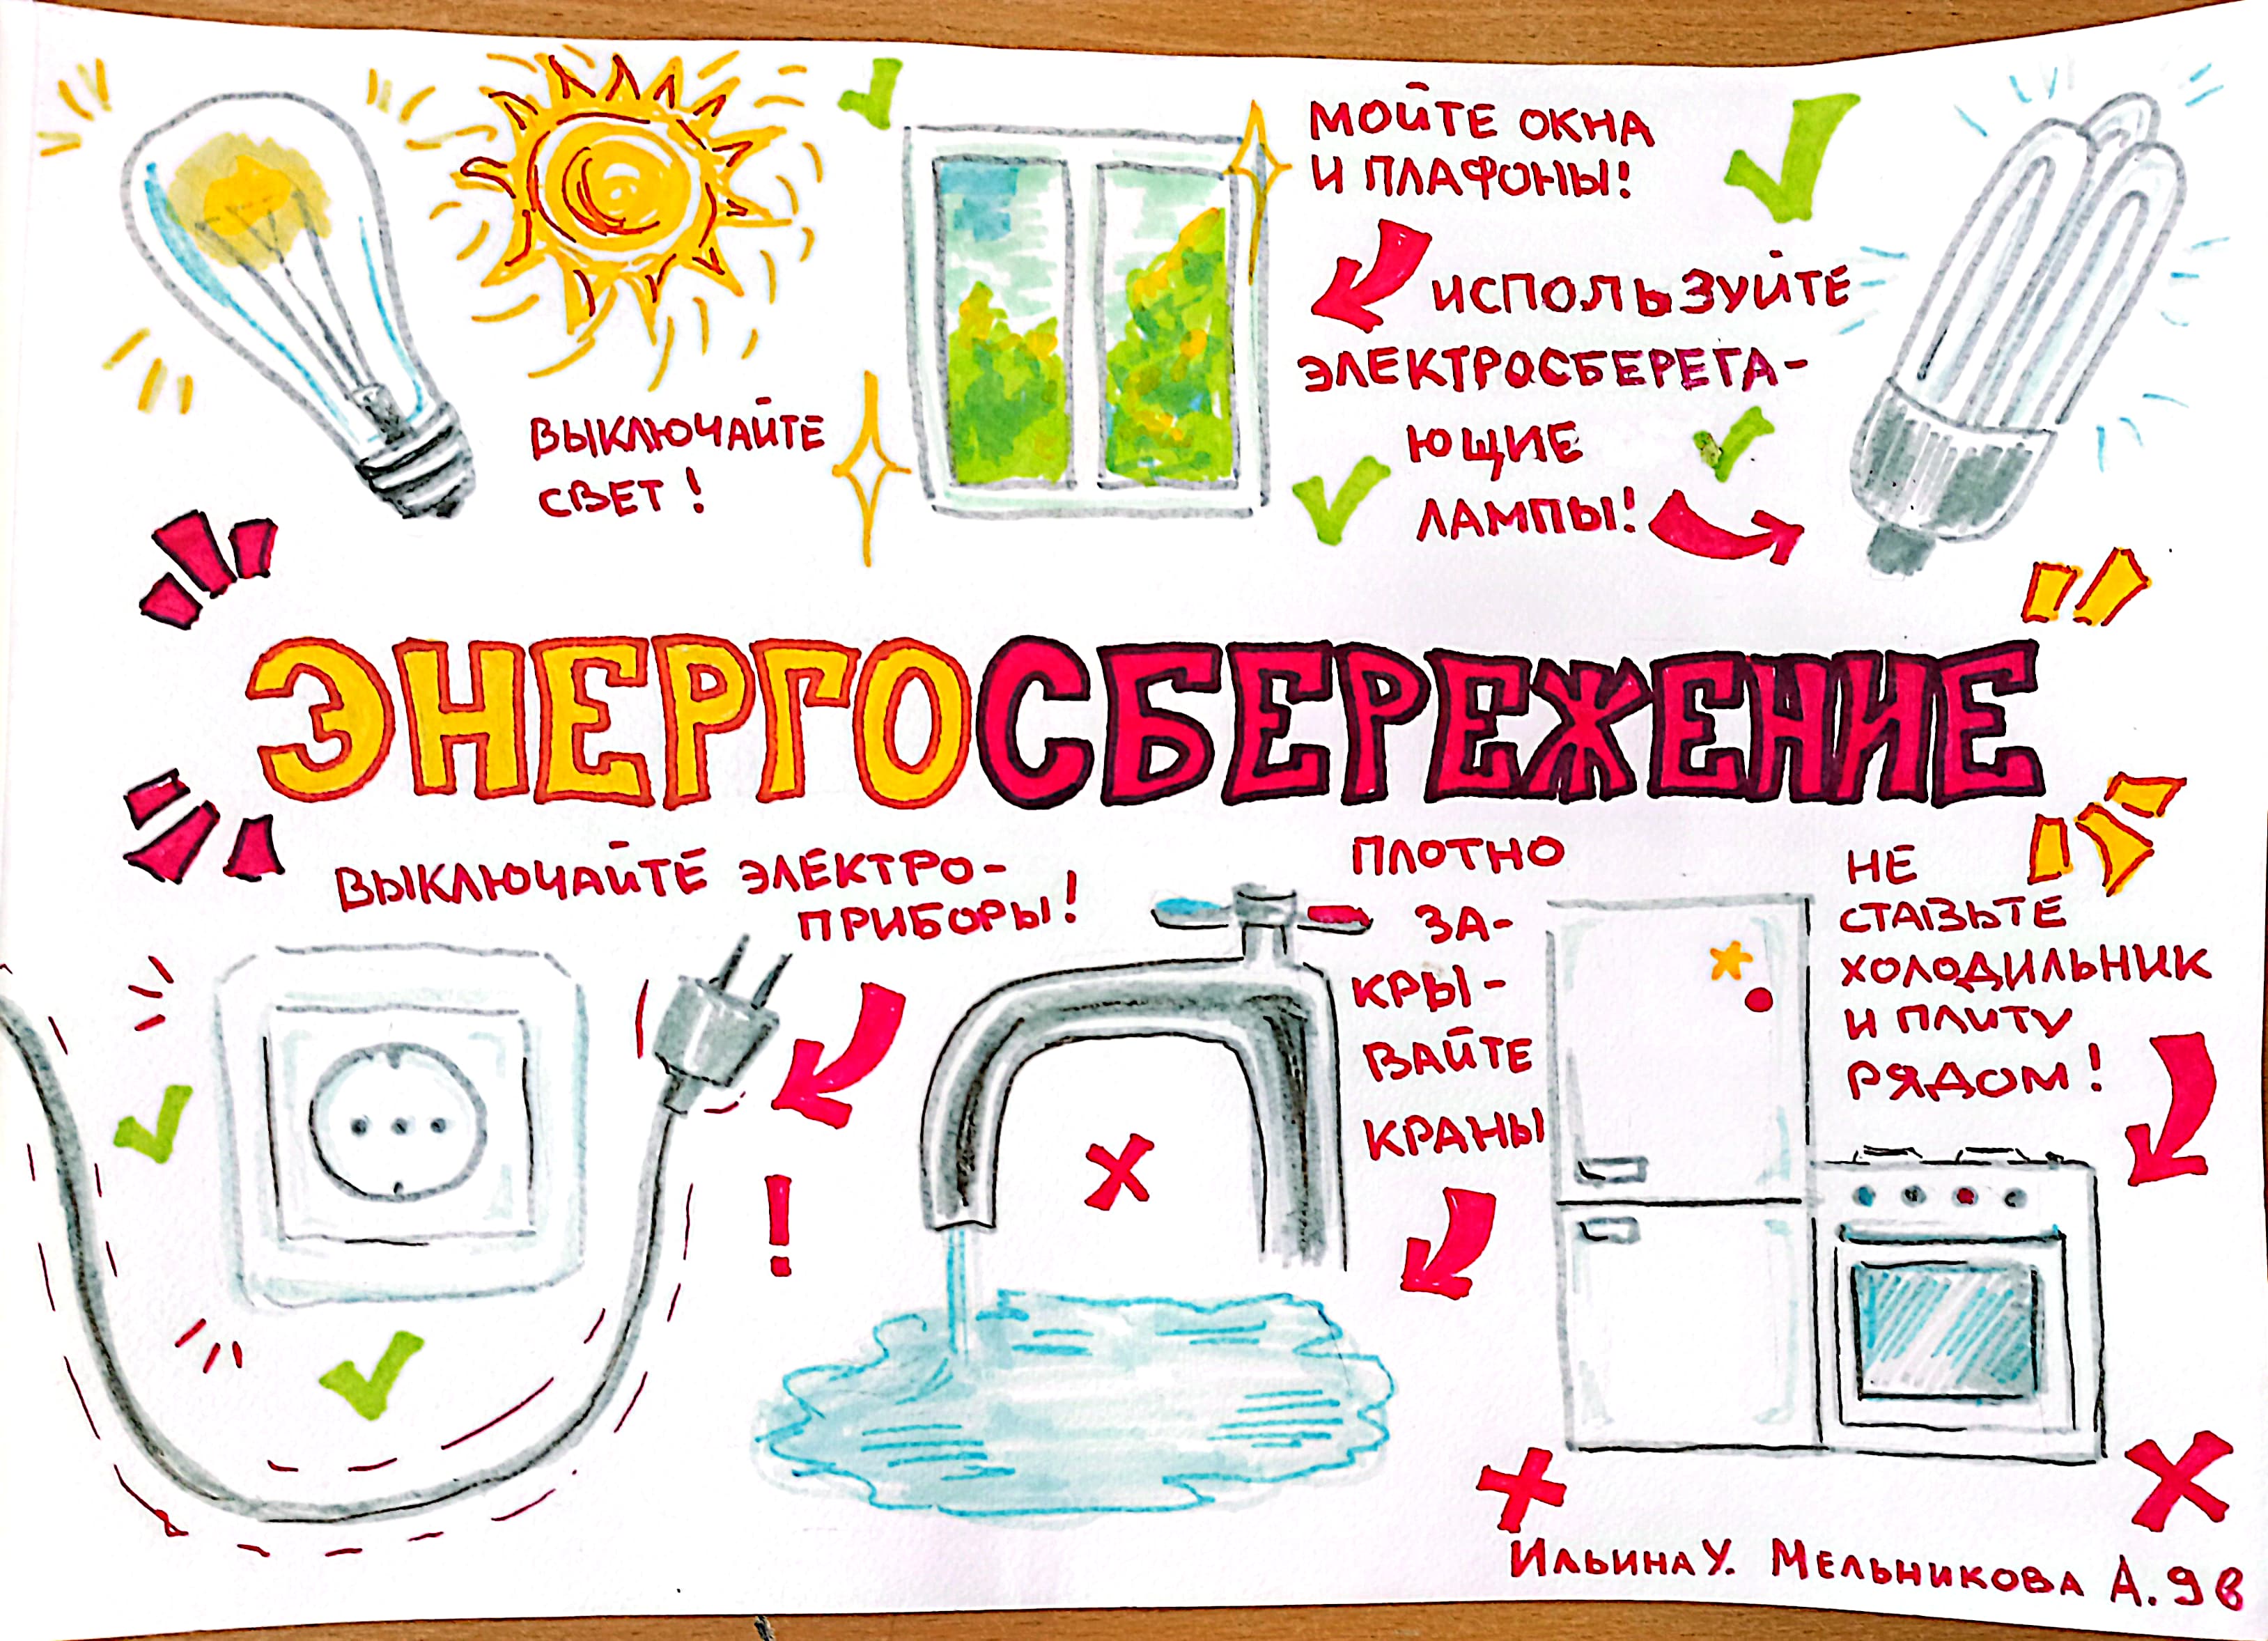 ВЫКЛЮЧАЙТЕ
СВЕТ!
МОЙТЕ ОКНА
И ПЛАФОНЫ!
ИСПОЛЬЗУЙТЕ
ЭЛЕКТРОСБЕРЕГА-
ЮЩИЕ
ЛАМПЫ!
ЭНЕРГОСБЕРЕЖЕНИЕ
ВЫКЛЮЧАЙТЕ ЭЛЕКТРО-
ПРИБОРЫ!
!
ПЛОТНО
ЗА-
КРЫ-
ВАЙТЕ
КРАНЫ
НЕ
СТАВЬТЕ
ХОЛОДИЛЬНИК
И ПЛИТУ
РЯДОМ!
ИЛЬИНА У. МЕЛЬНИКОВА А. 9 в